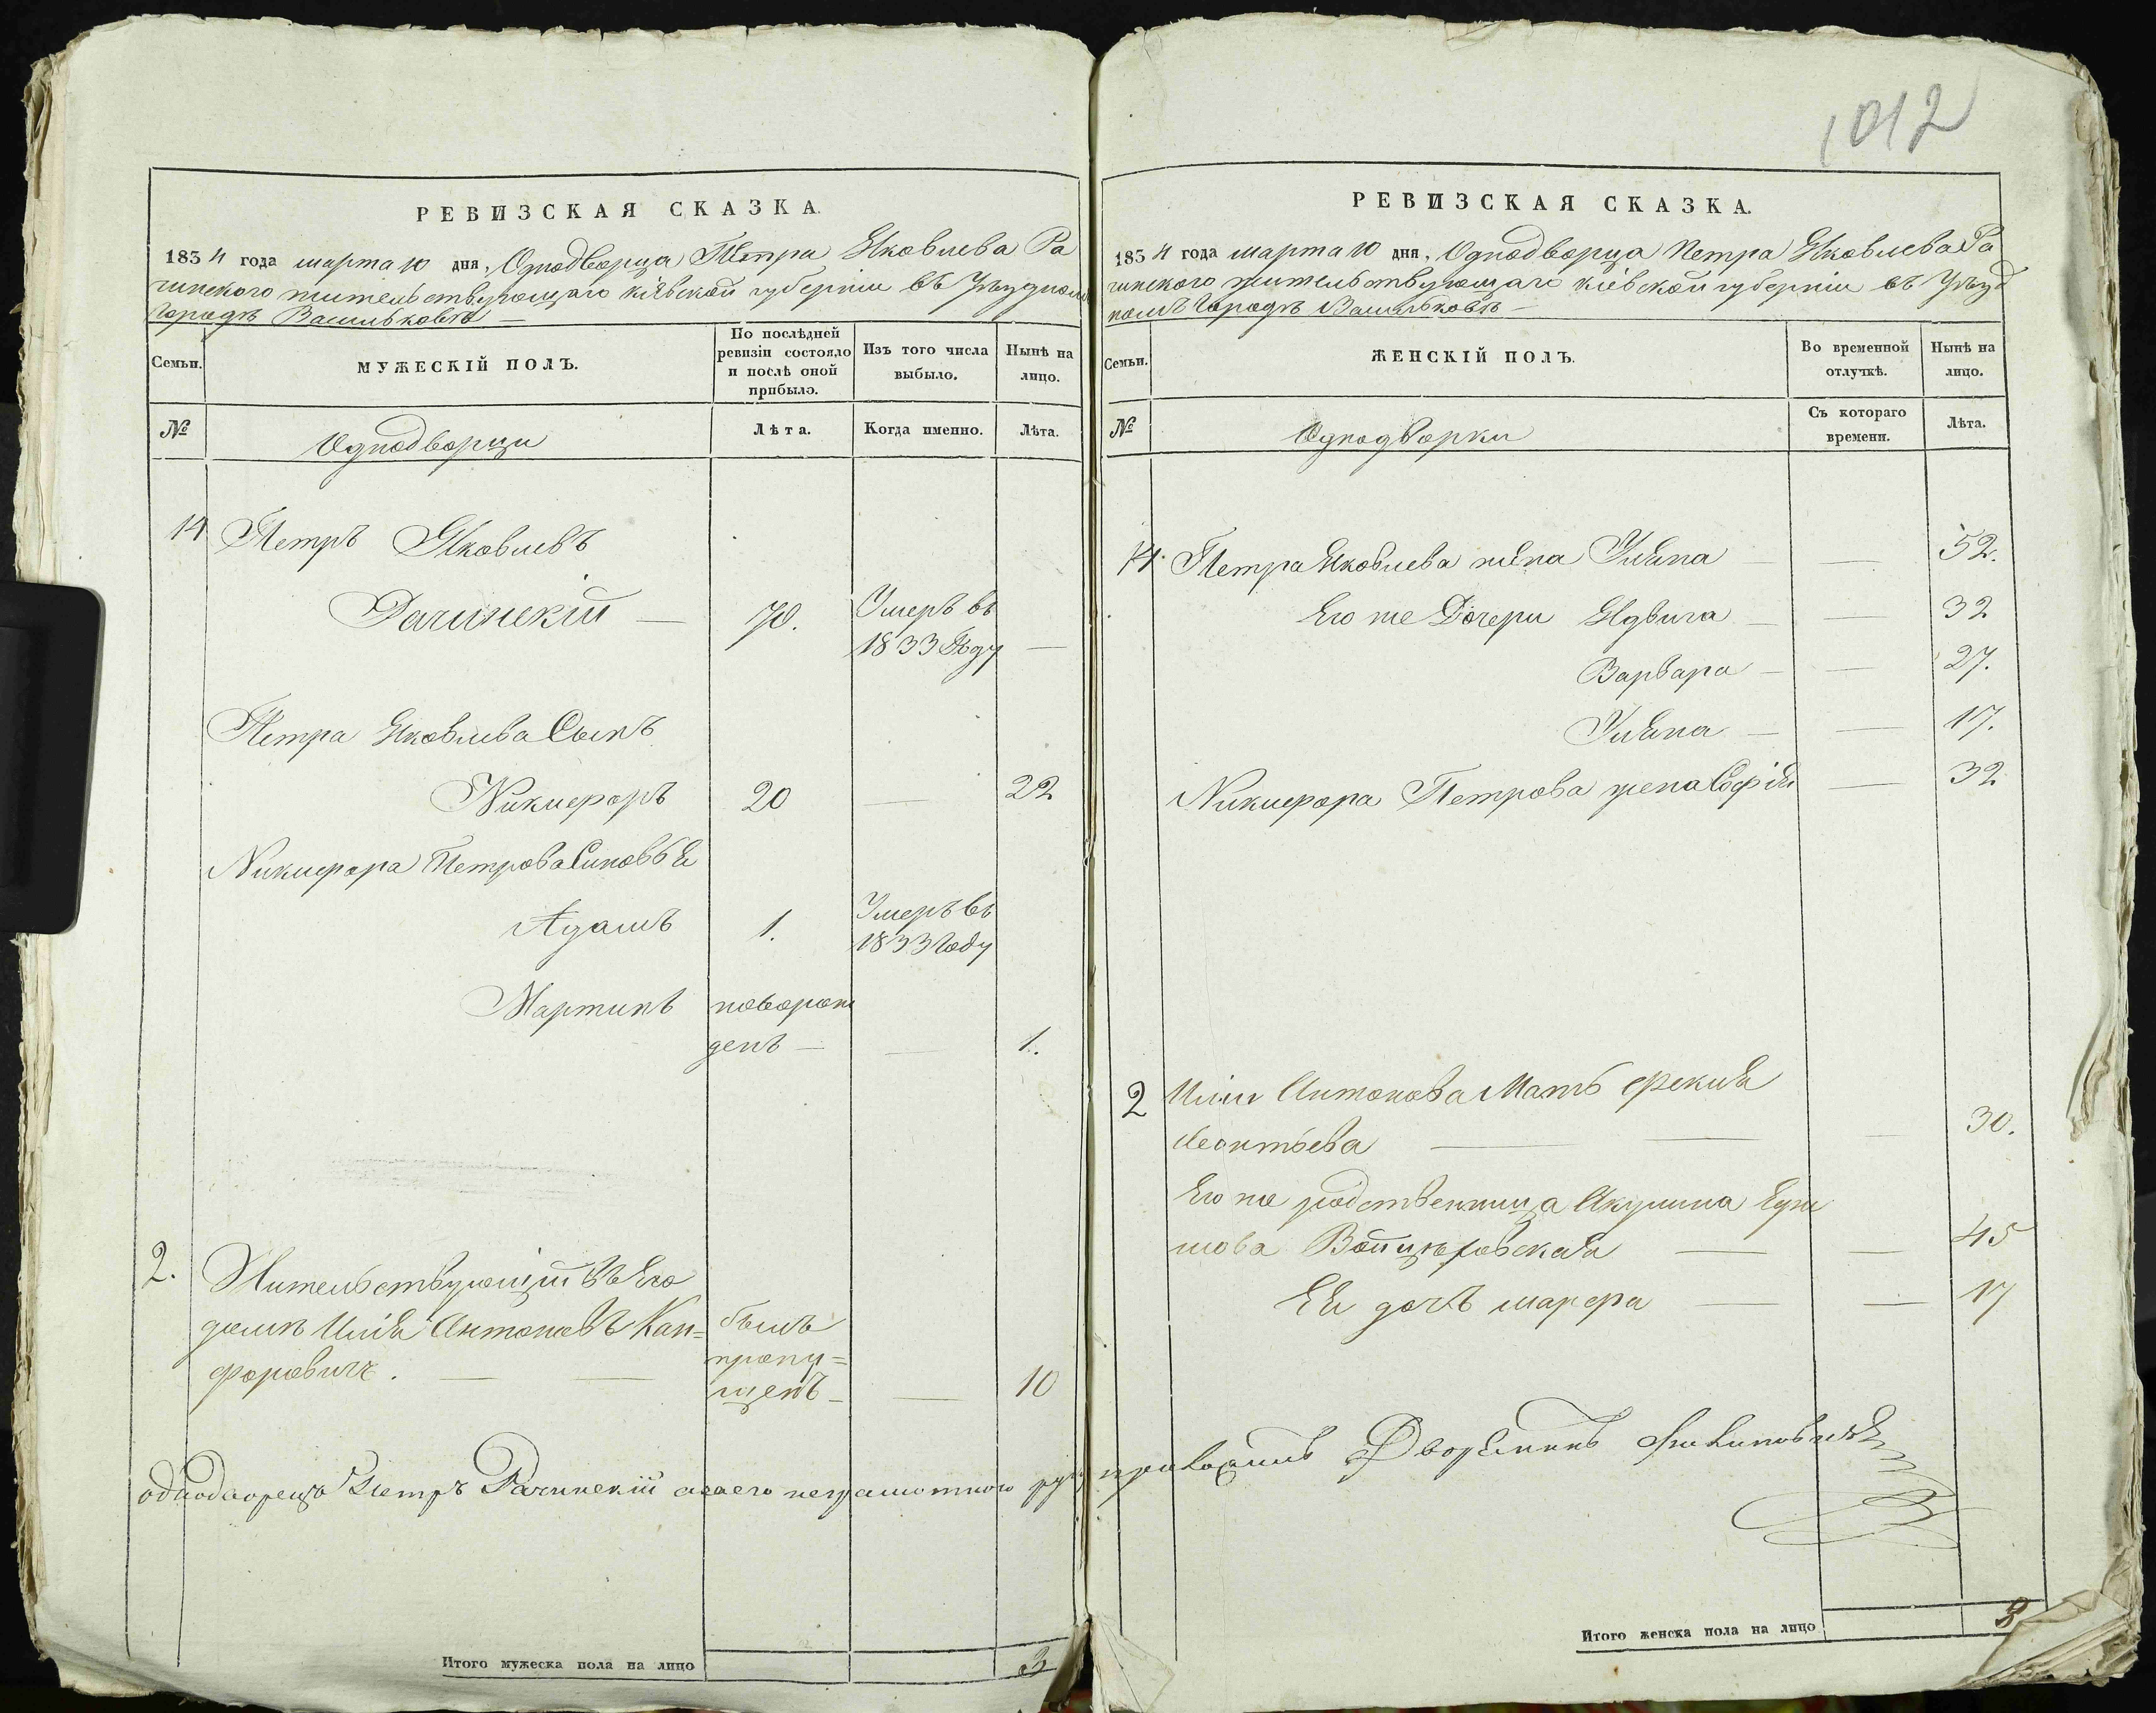 РЕВИЗСКАЯ СКАЗКА.
1834 года марта 10 дня, Однодворца Петра Яковлева Ра
чинского жительствующаго кіевской губерніи въ Уездном
Городѣ Васильковѣ —
Семьи.
МУЖЕСКІЙ ПОЛЪ.
По послѣдней ревизіи состояло и послѣ оной прибыло.
Изъ того числа выбыло.
Нынѣ на лицо.
№
Однодворци
Лѣта.
Когда именно.
Лѣта.
14 Петръ Яковлевъ
Рачинскій — 70. Умеръ въ
1833 Году —
Петра Яковлева Сынъ
Никифоръ 20 — 22
Никифора Петрова Синовья
Адамъ 1. Умеръ въ
1833 Году
Мартинъ новорож
денъ — — 1.
2. Жительствующій въ Его
домѣ Илія Антоновъ Кан= былъ
форовичъ. — — пропу=
щенъ — — 10
однодворецъ Петръ Рачинскій а за его неграмотного руку приложилъ Дворянинъ
Итого мужеска пола на лицо 3
1012
РЕВИЗСКАЯ СКАЗКА.
1834 года марта 10 дня, Однодворца Петра Яковлева Ра
чинского жительствующаго кіевской губерніи въ Уезд
номъ Городѣ Васильковѣ —
Семьи.
ЖЕНСКІЙ ПОЛЪ.
Во временной отлучкѣ.
Нынѣ на лицо.
№
Однодворки
Съ котораго времени.
Лѣта.
14. Петра Яковлева жена Уляна — — 52.
Его же Дочери Ядвига — — 32
Варвара — — 27.
Уляна — — 17.
Никифора Петрова жена Софія — 32
2 Иліи Антонова Мать Фекля
Леонтьева — — — 30.
Его же родственница Акулина
— — 45
Ея дочь марфа — — 17
Итого женска пола на лицо 8